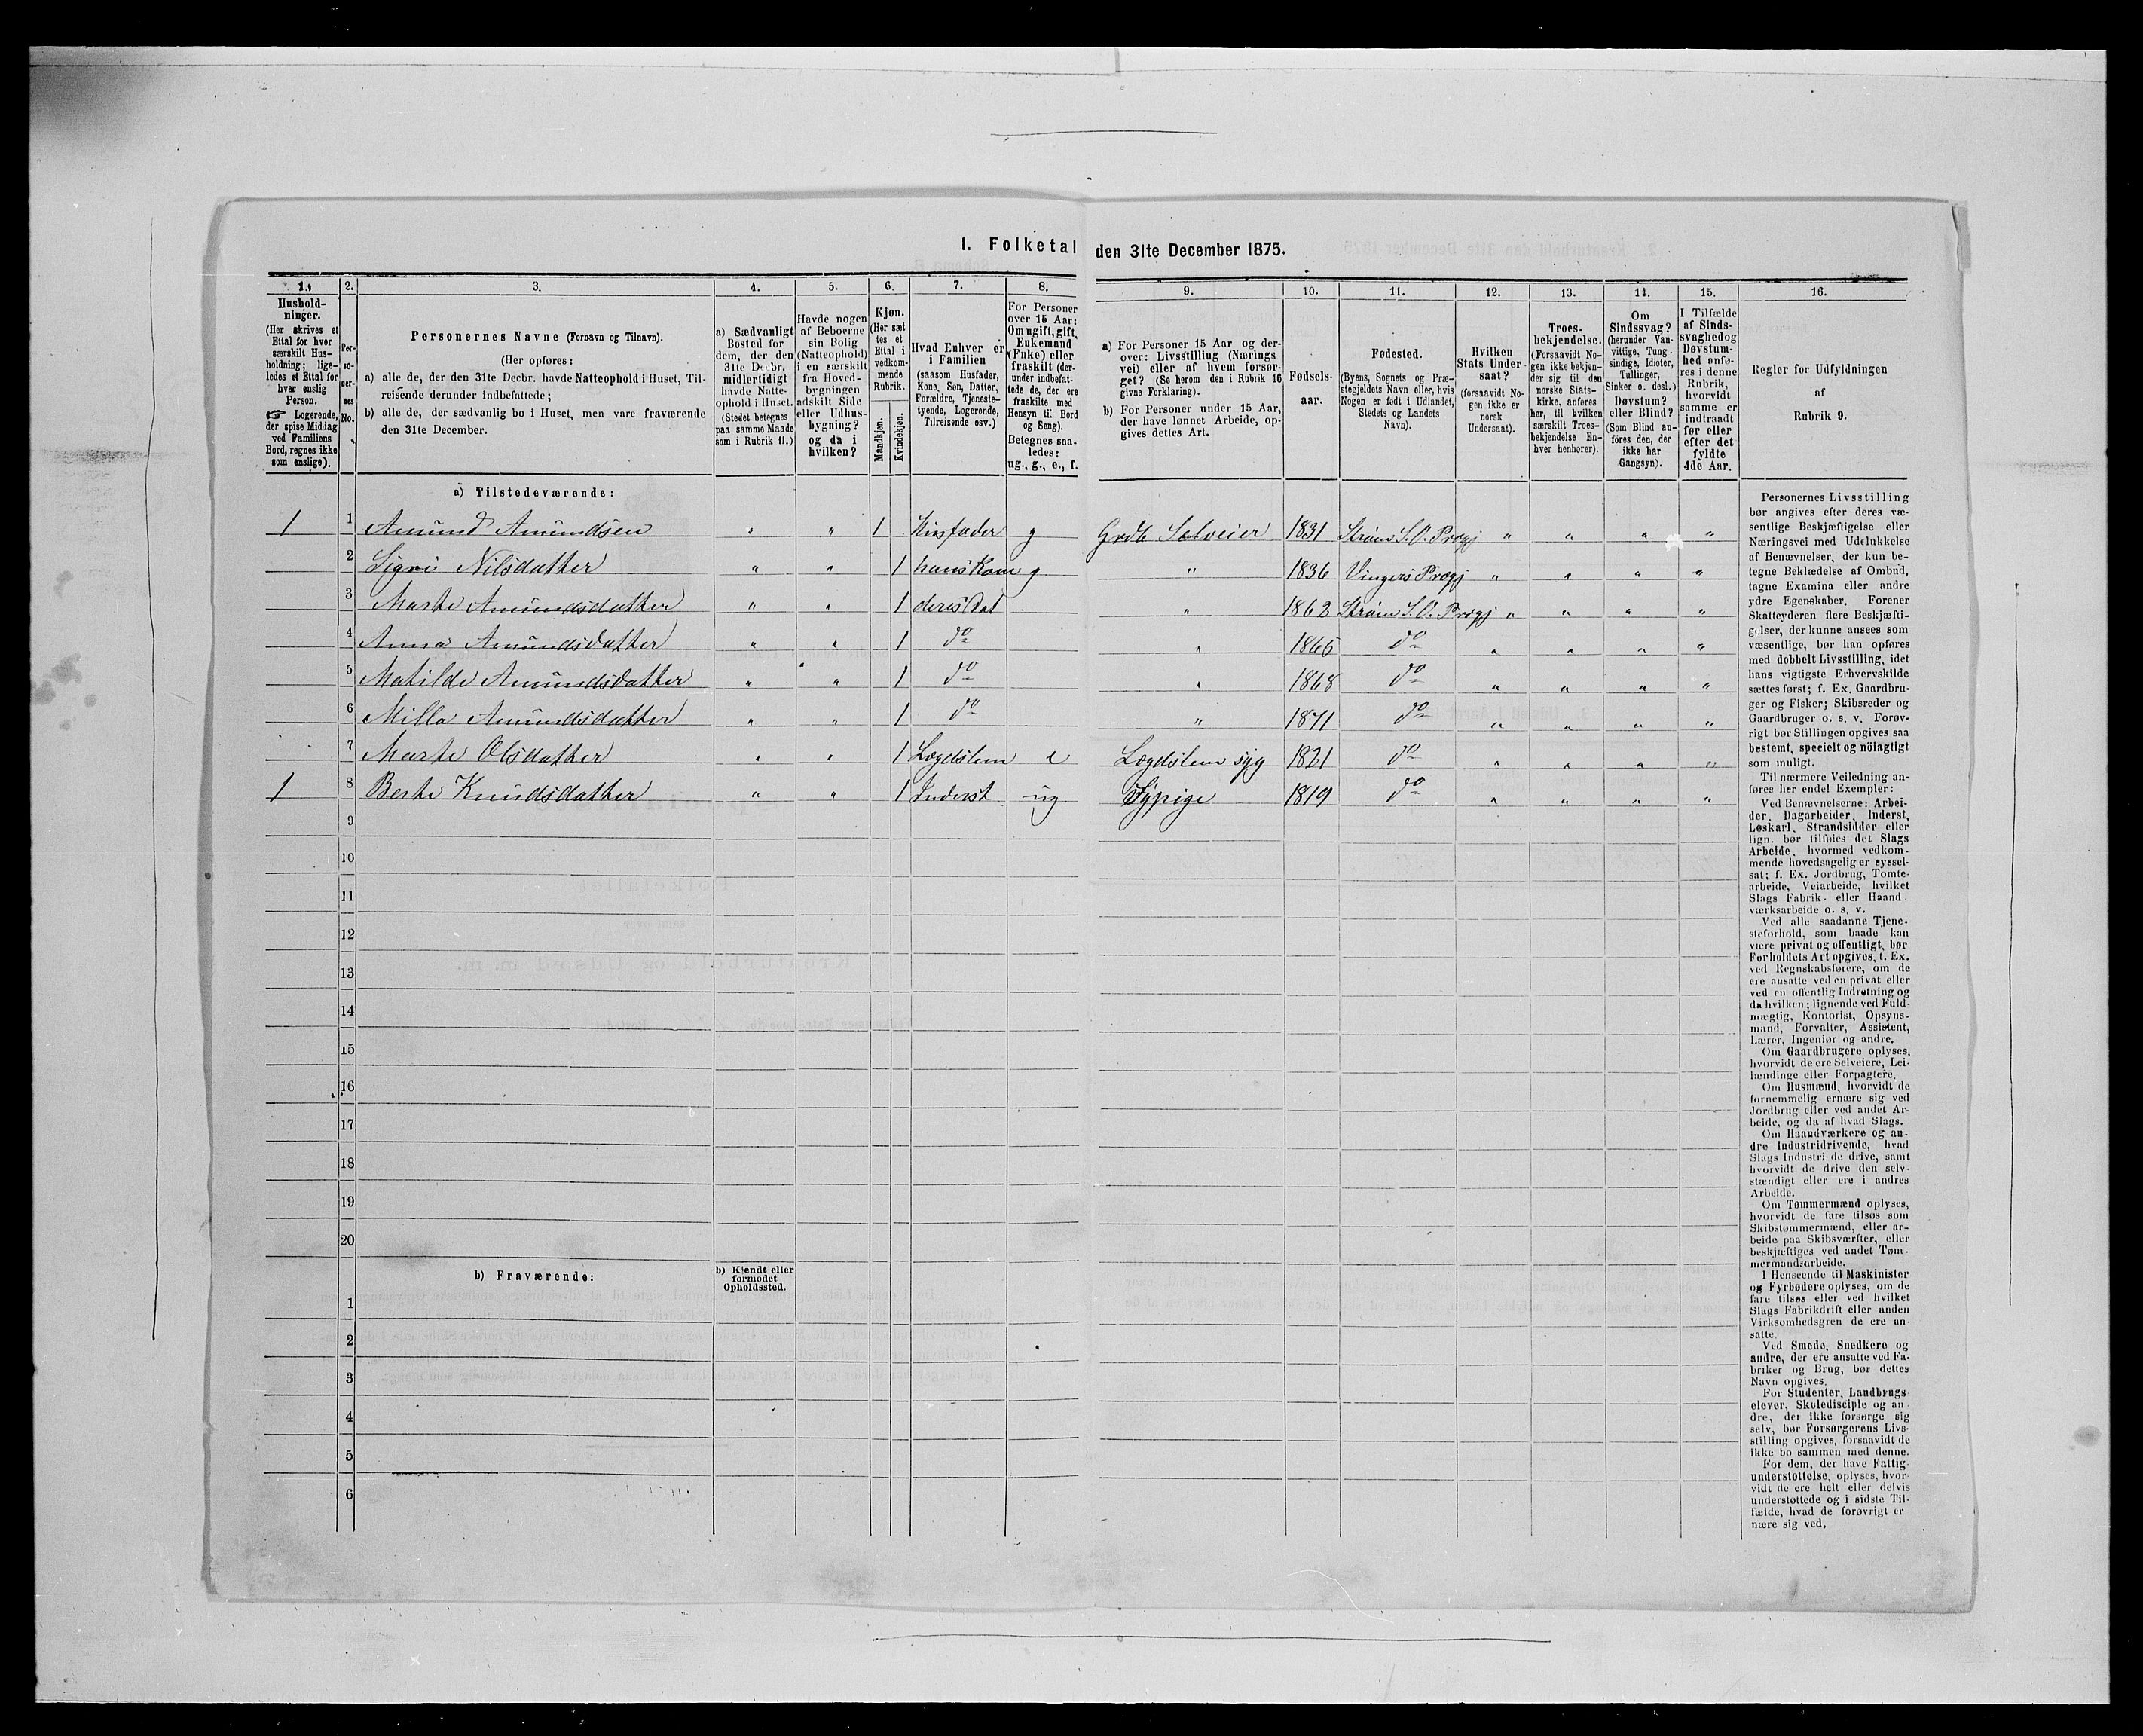 I. Folketal den 31te December 1875.
1. 2. 3. 4. 5. 6. 7. 8. 9. 10. 11. 12. 13. 14. 15. 16.
Hushold-
ninger.
(Her skrives et
Ettal for hver
særskilt Hus-
holdning; lige-
ledes et Ettal for
hver enslig
Person.
☞ Logerende,
der spise Middag
ved Familiens
Bord, regnes ikke
som enslige).
Per-
so-
ner-
nes
No.
Personernes Navne (Fornavn og Tilnavn).
(Her opføres:
a) alle de, der den 31te Decbr. havde Natteophold i Huset, Til-
reisende derunder indbefattede;
b) alle de, der sædvanlig bo i Huset, men vare fraværende
den 31te December.
a) Sædvanligt
Bosted for
dem, der den
31te Decbr.
midlertidigt
havde Natte-
ophold i Huset.
(Stedet betegnes
paa samme Maade
som i Rubrik 11.)
Havde nogen
af Beboerne
sin Bolig
(Natteophold)
i en særskilt
fra Hoved-
bygningen
adskilt Side
eller Udhus-
bygning?
og da i
hvilken?
Kjøn.
(Her sæt
tes et
Ettal i
vedkom-
mende
Rubrik.
Mandkjøn.
Kvindekjøn.
Hvad Enhver er
i Familien
(saasom Husfader,
Kone, Søn, Datter,
Forældre, Tjeneste-
tyende, Logerende,
Tilreisende osv.)
For Personer
over 15 Aar:
Om ugift, gift,
Enkemand
(Enke) eller
fraskilt (der-
under indbefat-
tede de, der ere
fraskilte med
Hensyn til Bord
og Seng).
Betegnes saa-
ledes:
ug., g., e., f.
a) For Personer 15 Aar og der-
over: Livsstilling (Nærings
vei) eller af hvem forsør-
get? (Se herom den i Rubrik 16
givne Forklaring).
b) For Personer under 15 Aar,
der have lønnet Arbeide, op-
gives dettes Art.
Fødsels-
aar.
Fødested.
(Byens, Sognets og Præ-
stegjeldets Navn eller, hvis
Nogen er født i Udlandet,
Stedets og Landets
Navn).
Hvilken
Stats Under-
saat?
(forsaavidt No-
gen ikke er
norsk
Undersaat).
Troes-
bekjendelse.
(Forsaavidt No-
gen ikke bekjen-
der sig til den
norske Stats-
kirke, anføres
her, til hvilken
særskilt Troes-
bekjendelse En-
hver henhører).
Om
Sindssvag?
(herunder Van-
vittige, Tung-
sindige, Idioter,
Tullinger,
Sinker o. desl.)
Døvstum?
eller Blind?
(Som Blind an-
føres den, der
ikke har
Gangsyn).
I Tilfælde
af Sinds-
svaghed og
Døvstum-
hed anfø-
res i denne
Rubrik,
hvorvidt
samme er
indtraadt
før eller
efter det
fyldte
4de Aar.
Regler for Udfyldningen
af
Rubrik 9.
a) Tilstedeværende:
1 1 Amund Amundsen " " 1 Husfader g Grdb Selveier 1831 Strøm S. O. Prgj " " " "
2 Sigri Nilsdatter " " 1 hans Kone g " 1836 Vingers Prgj " " " "
3 Marte Amundsdatter " " 1 deres Dat " 1862 Strøm S. O. Prgj " " " "
4 Anna Amundsdatter " " 1 do " 1865 do " " " "
5 Matilde Amundsdatter " " 1 do " 1868 do " " " "
6 Milla Amundsdatter " " 1 do " 1871 do " " " "
7 Marte Olsdatter " " 1 Lægdslem e Lægdslem syg 1821 do " " " "
1 8 Berte Knudsdatter " " 1 Inderst ug Sypige 1819 do " " " "
9
10
11
12
13
14
15
16
17
18
19
20
b) Fraværende:
b) Kjendt eller
formodet
Opholdssted.
1
2
3
4
5
6
Personernes Livsstilling
bør angives efter deres væ-
sentlige Beskjæftigelse eller
Næringsvei med Udelukkelse
af Benævnelser, der kun be-
tegne Beklædelse af Ombud,
tagne Examina eller andre
ydre Egenskaber. Forener
Skatteyderen flere Beskjæfti-
gelser, der kunne ansees som
væsentlige, bør han opføres
med dobbelt Livsstilling, idet
hans vigtigste Erhvervskilde
sættes først; f. Ex. Gaardbru-
ger og Fisker; Skibsreder og
Gaardbruger o. s. v. Forøv-
rigt bør Stillingen opgives saa
bestemt, specielt og nöiagtigt
som muligt.
Til nærmere Veiledning an-
føres her endel Exempler:
Ved Benævnelserne: Arbei-
der, Dagarbeider, Inderst,
Løskarl, Strandsidder eller
lign. bør tilføies det Slags
Arbeide, hvormed vedkom-
mende hovedsagelig er syssel-
sat; f. Ex. Jordbrug, Tomte-
arbeide, Veiarbeide, hvilket
Slags Fabrik- eller Haand-
værksarbeide o. s. v.
Ved alle saadanne Tjene-
steforhold, som baade kan
være privat og offentligt, bør
Forholdets Art opgives, t. Ex.
ved Regnskabsførere, om de
ere ansatte ved en privat eller
ved en offentlig Indretning og
da hvilken; lignende ved Fuld-
mægtig, Kontorist, Opsyns-
mand, Forvalter, Assistent,
Lærer, Ingeniør og andre.
Om Gaardbrugere oplyses,
hvorvidt de ere Selveiere, Lei-
lændinge eller Forpagtere.
Om Husmænd, hvorvidt de
fornemmelig ernære sig ved
Jordbrug eller ved andet Ar-
beide, og da af hvad Slags.
Om Haandværkere og an-
dre Industridrivende, hvad
Slags Industri de drive, samt
hvorvidt de drive den selv-
stændigt eller ere i andres
Arbeide.
Om Tømmermænd oplyses,
hvorvidt de fare tilsøs som
Skibstømmermænd, eller ar-
beide paa Skibsværfter, eller
beskjæftiges ved andet Tøm-
mermandsarbeide.
I Henseende til Maskinister
og Fyrbødere oplyses, om de
fare tilsøs eller ved hvilket
Slags Fabrikdrift eller anden
Virksomhedsgren de ere an-
satte.
Ved Smede, Snedkere og
andre, der ere ansatte ved Fa-
briker og Brug, bør dettes
Navn opgives.
For Studenter, Landbrugs-
elever, Skoledisciple og an-
dre, der ikke forsørge sig
selv, bør Forsørgerens Livs-
stilling opgives, forsaavidt de
ikke bo sammen med denne.
For dem, der have Fattig-
understøttelse, oplyses, hvor-
vidt de ere helt eller delvis
understøttede og i sidste Til-
fælde, hvad de forøvrigt er
nære sig ved.